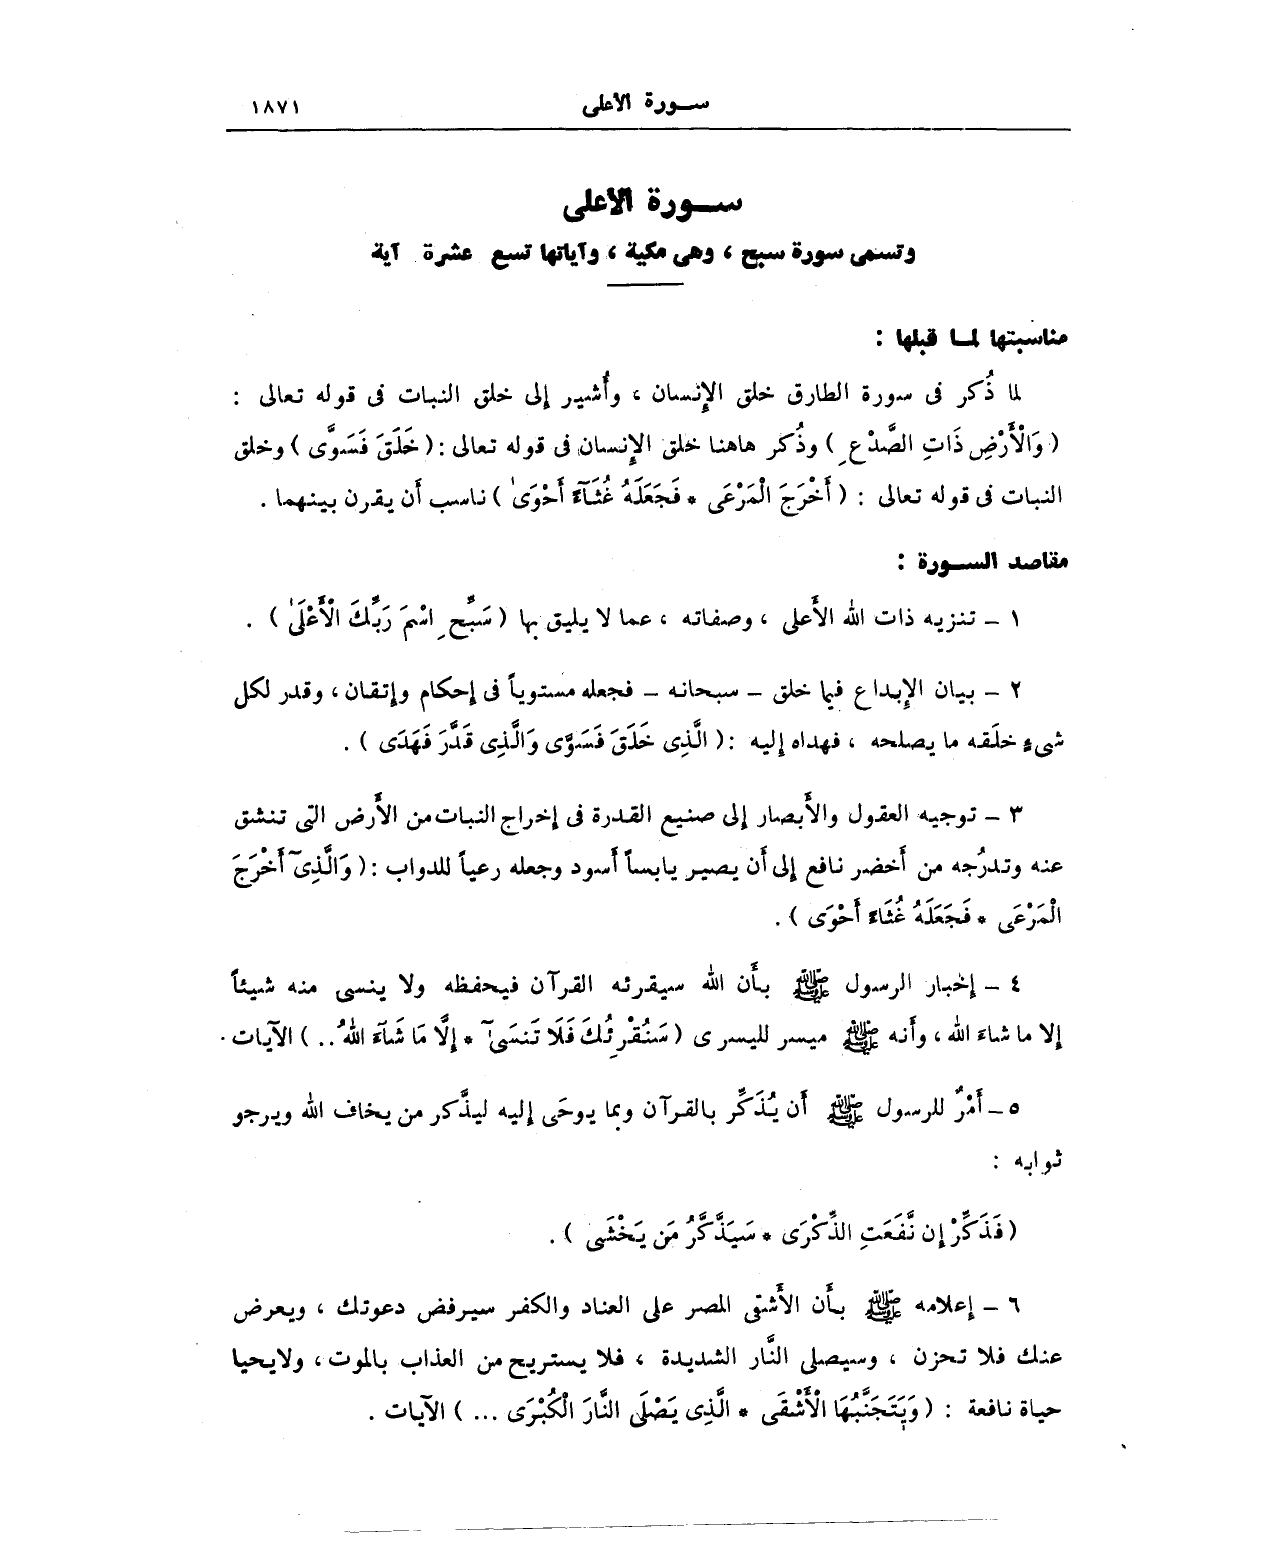 سورة الأعلى ١٨٧١
سورة الأعلى
وتسمى سورة سبح ، وهى مكية ، وآياتها تسع عشرة آية
مناسبتها لما قبلها :
لما ذُكر فى سورة الطارق خلق الإنسان ، وأُشير إلى خلق النبات فى قوله تعالى :
( وَالْأَرْضِ ذَاتِ الصَّدْعِ ) وذُكر هاهنا خلق الإنسان فى قوله تعالى : ( خَلَقَ فَسَوَّى ) وخلق
النبات فى قوله تعالى : ( أَخْرَجَ الْمَرْعَى * فَجَعَلَهُ غُثَآءً أَحْوَىٰ ) ناسب أن يقرن بينهما .
مقاصد السورة :
١ ــ تنزيه ذات الله الأعلى ، وصفاته ، عما لا يليق بها ( سَبِّحِ اسْمَ رَبِّكَ الْأَعْلَىٰ ) .
٢ ــ بيان الإبداع فيما خلق ــ سبحانه ــ فجعله مستوياً فى إحكام وإتقان ، وقدر لكل
شىء خلَقه ما يصلحه ، فهداه إليه : ( الَّذِى خَلَقَ فَسَوَّى وَالَّذِى قَدَّرَ فَهَدَى ) .
٣ ــ توجيه العقول والأبصار إلى صنيع القدرة فى إخراج النبات من الأرض التى تنشق
عنه وتدرُجه من أخضر نافع إلى أن يصير يابساً أسود وجعله رعياً للدواب : ( وَالَّذِىٓ أَخْرَجَ
الْمَرْعَى * فَجَعَلَهُ غُثَاءً أَحْوَى ) .
٤ ــ إخبار الرسول ﷺ بأن الله سيقرئه القرآن فيحفظه ولا ينسى منه شيئاً
إلا ما شاء الله ، وأنه ﷺ ميسر لليسرى ( سَنُقْرِئُكَ فَلَا تَنسَىٓ * إِلَّا مَا شَآءَ اللهُ .. ) الآيات .
٥ ــ أَمْرٌ للرسول ﷺ أن يُذَكِّر بالقرآن وبما يوحَى إليه ليذَّكر من يخاف الله ويرجو
ثوابه :
( فَذَكِّرْ إِن نَّفَعَتِ الذِّكْرَى * سَيَذَّكَّرُ مَن يَخْشَى ) .
٦ ــ إعلامه ﷺ بأن الأشقى المصر على العناد والكفر سيرفض دعوتك ، ويعرض
عنك فلا تحزن ، وسيصلى النَّار الشديدة ، فلا يستريح من العذاب بالموت ، ولايحيا
حياة نافعة : ( وَيَتَجَنَّبُهَا الْأَشْقَى * الَّذِى يَصْلَى النَّارَ الْكُبْرَى ... ) الآيات .